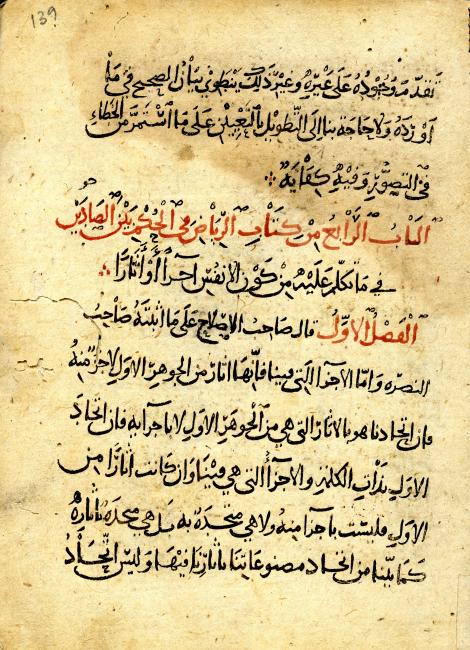 139
تقدم وجوده على غيره وغير ذلك ينطوي بيان الصحيح في ما
اوردَه ولا حاجة بنا الى التطويل بالتعيين على ما استمر من الخطاء
في التصوير وفيه كفاية
الباب الرابع من كتاب الرياض في الحكم بين الصادين
في ما تكلم عليه من كون الانفس اجزاءً او اثارًا
الفصل الاول قال صاحب الاصلاح على ما اثبته صاحب
النصره واما الاجزا التي فينا فانها اثار من الجوهر الاول لا جزء منه
فان اتحادنا هو بالاثار التي هي من الجوهر الاول لا باجزا به فان اتحاد
الاول بذات الكلمة والاجزا التي هي فينا وان كانت اثارًا من
الاول فليست باجزا منه ولا هي متحدة به بل هي متحدة باثاره
كما بيّنا من اتحاد مصنوعاتنا باثارنا فيها وليس اتحاد